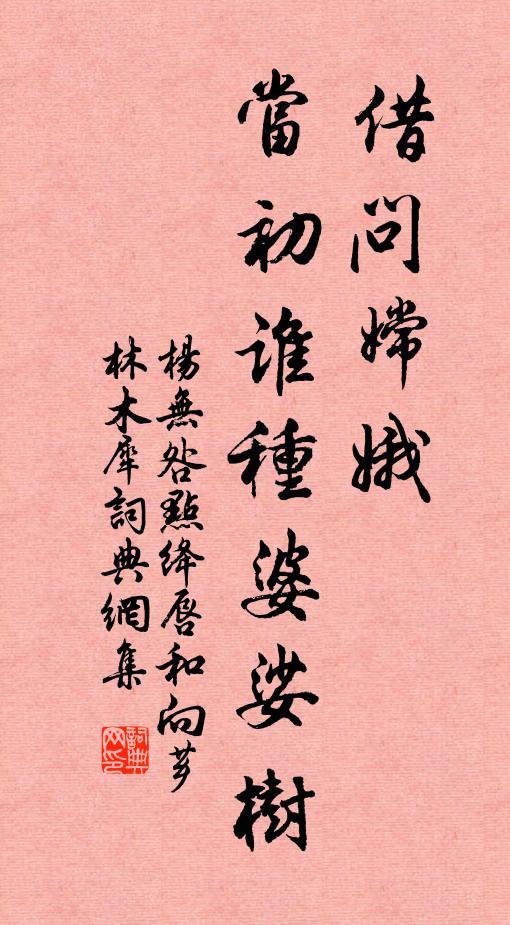 借問嫦娥
當初誰種婆娑樹
楊無咎點絳唇和向芗
林木犀詞典網集
詞典网印